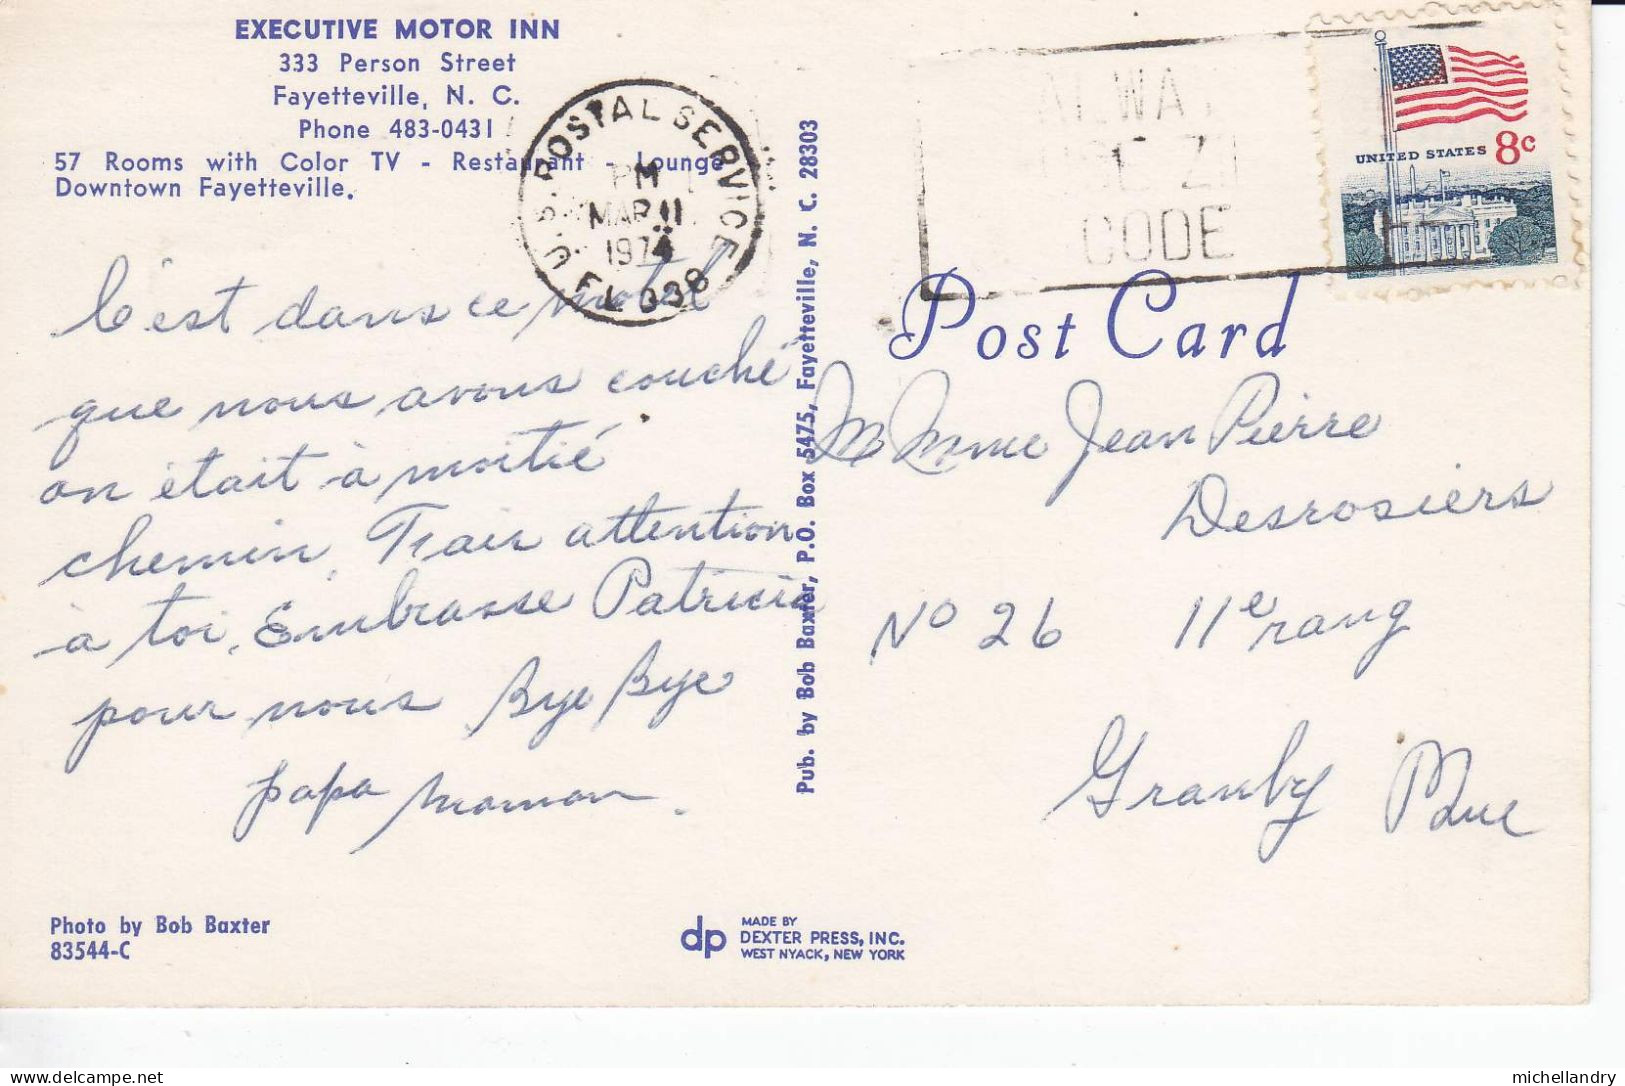 EXECUTIVE MOTOR INN
333 Person Street
Fayetteville, N. C.
Phone 483-0431
57 Rooms with Color TV - Restaurant - Lounge
Downtown Fayetteville.
U.S. POSTAL SERVICE
PM
MAR 11
1974
FL 338
CODE
UNITED STATES 8c
C'est dans ce motel
que nous avons couché
on était à moitié
chemin. Fair attention
à toi. Embrasse Patricia
pour nous Bye Bye
papa maman.
Pub. by Bob Baxter, P.O. Box 5475, Fayetteville, N. C. 28303
Post Card
M Mme Jean Pierre
Desrosiers
No 26 11e rang
Granby Que
Photo by Bob Baxter
83544-C
dp MADE BY
DEXTER PRESS, INC.
WEST NYACK, NEW YORK
michellandry